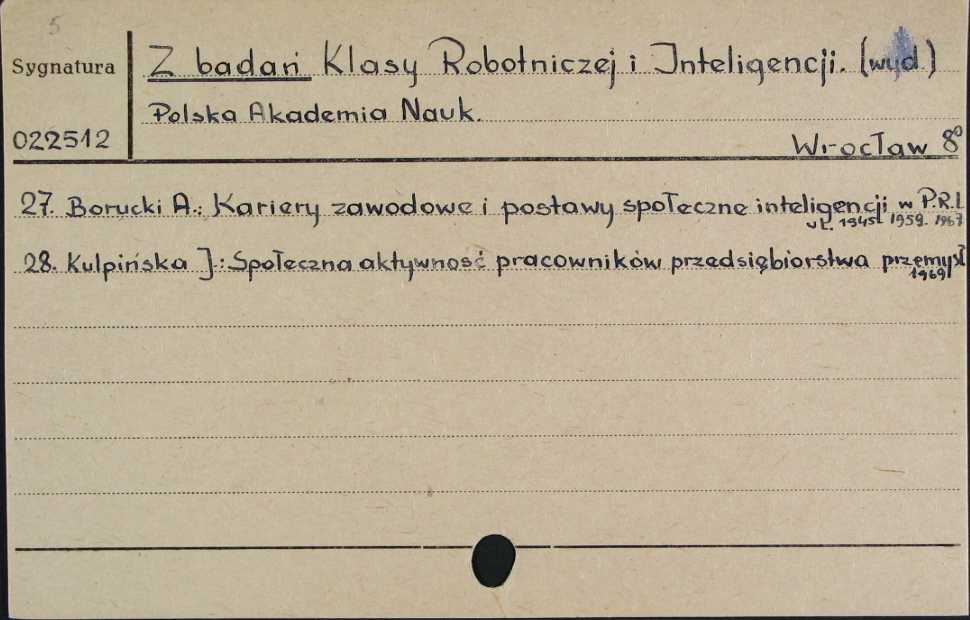 5
Sygnatura
Z badań Klasy Robotniczej i Inteligencji. (wyd.)
Polska Akademia Nauk.
022512
Wrocław 8°
27. Borucki A.: Kariery zawodowe i postawy społeczne inteligencji w P.R.L
1945 1959. 1967
28. Kulpińska J.: Społeczna aktywność pracowników przedsiębiorstwa przemysł
1969